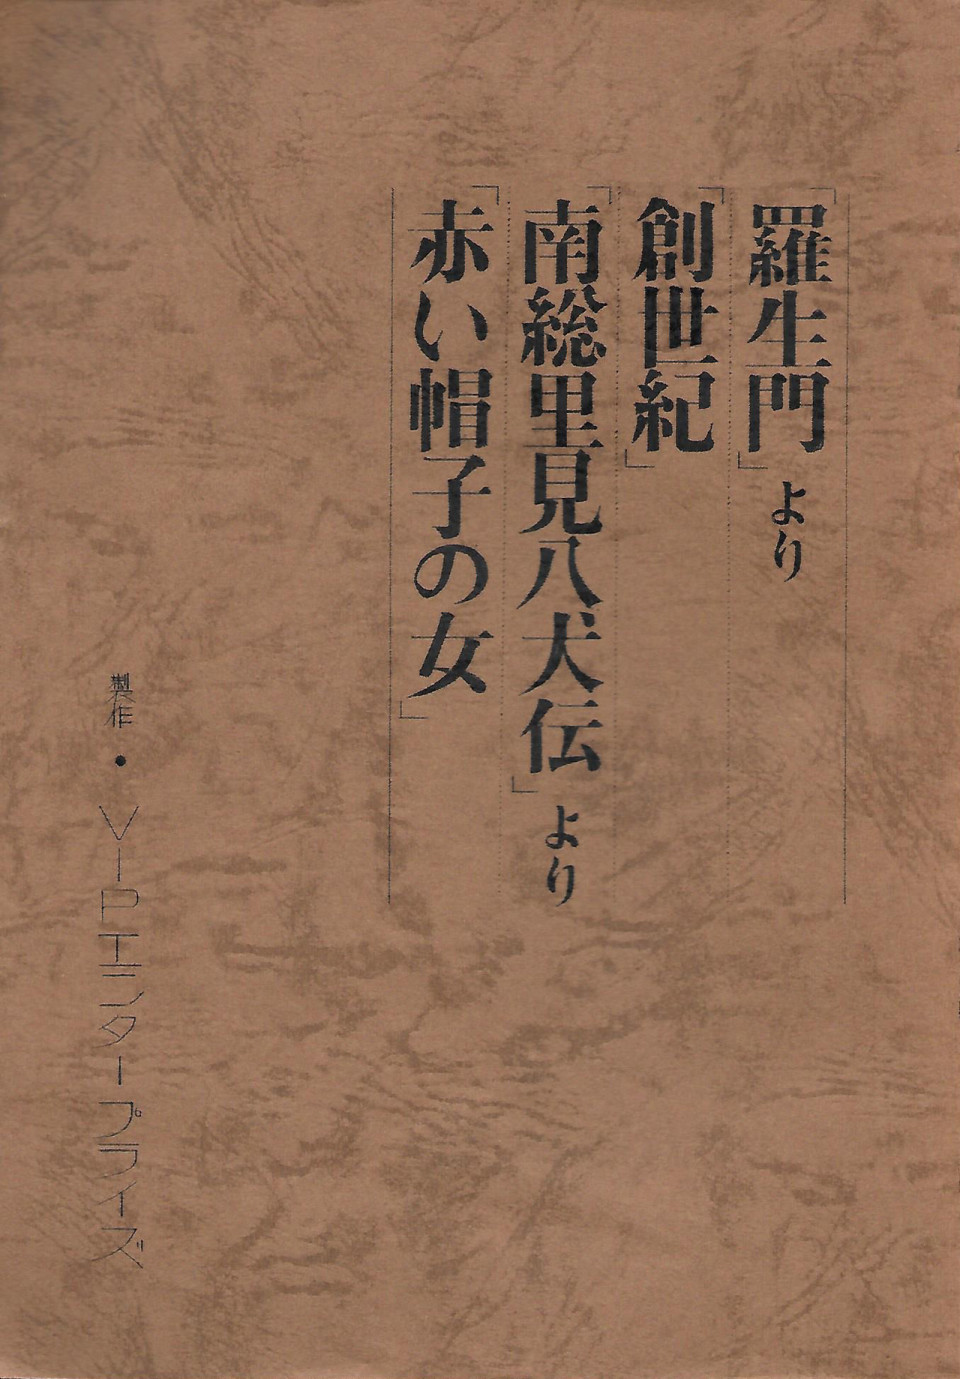 「羅生門」より
「創世紀」
「南総里見八犬伝」より
「赤い帽子の女」
製作・VIPエンタープライズ